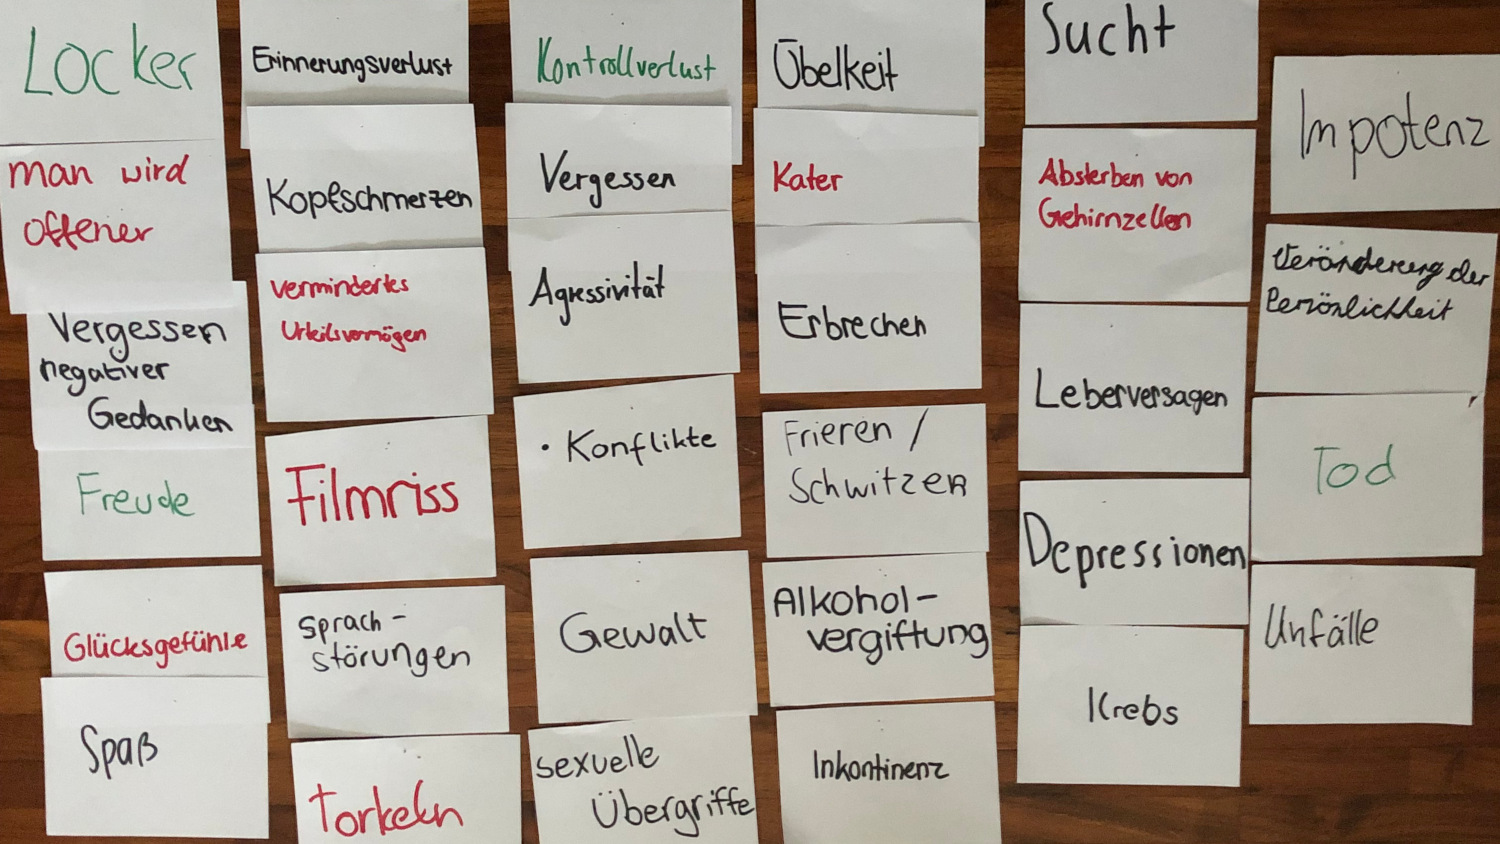 Locker
man wird
offener
Vergessen
negativer
Gedanken
Freude
Glücksgefühle
Spaß
Erinnerungsverlust
Kopfschmerzen
vermindertes
Urteilsvermögen
Filmriss
Sprach-
störungen
Torkeln
Kontrollverlust
Vergessen
Agressivität
• Konflikte
Gewalt
sexuelle
Übergriffe
Übelkeit
Kater
Erbrechen
Frieren /
Schwitzen
Alkohol-
vergiftung
Inkontinenz
Sucht
Absterben von
Gehirnzellen
Leberversagen
Depressionen
Krebs
Impotenz
Veränderung der
Persönlichkeit
Tod
Unfälle